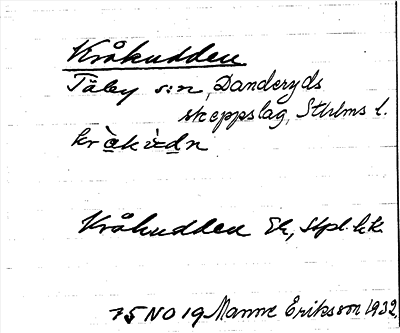 Kråkudden
Täby sn, Danderyds
skeppslag, Sthlms l.
Kråkudden Ek,
75 NO 19 Manne Eriksson 1932.